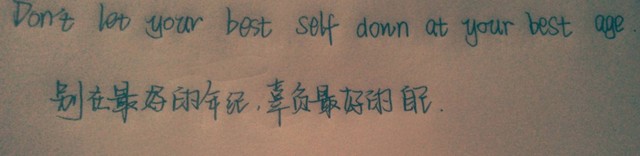 Don't let your best self down at your best age.
别在最好的年纪,辜负最好的自己.